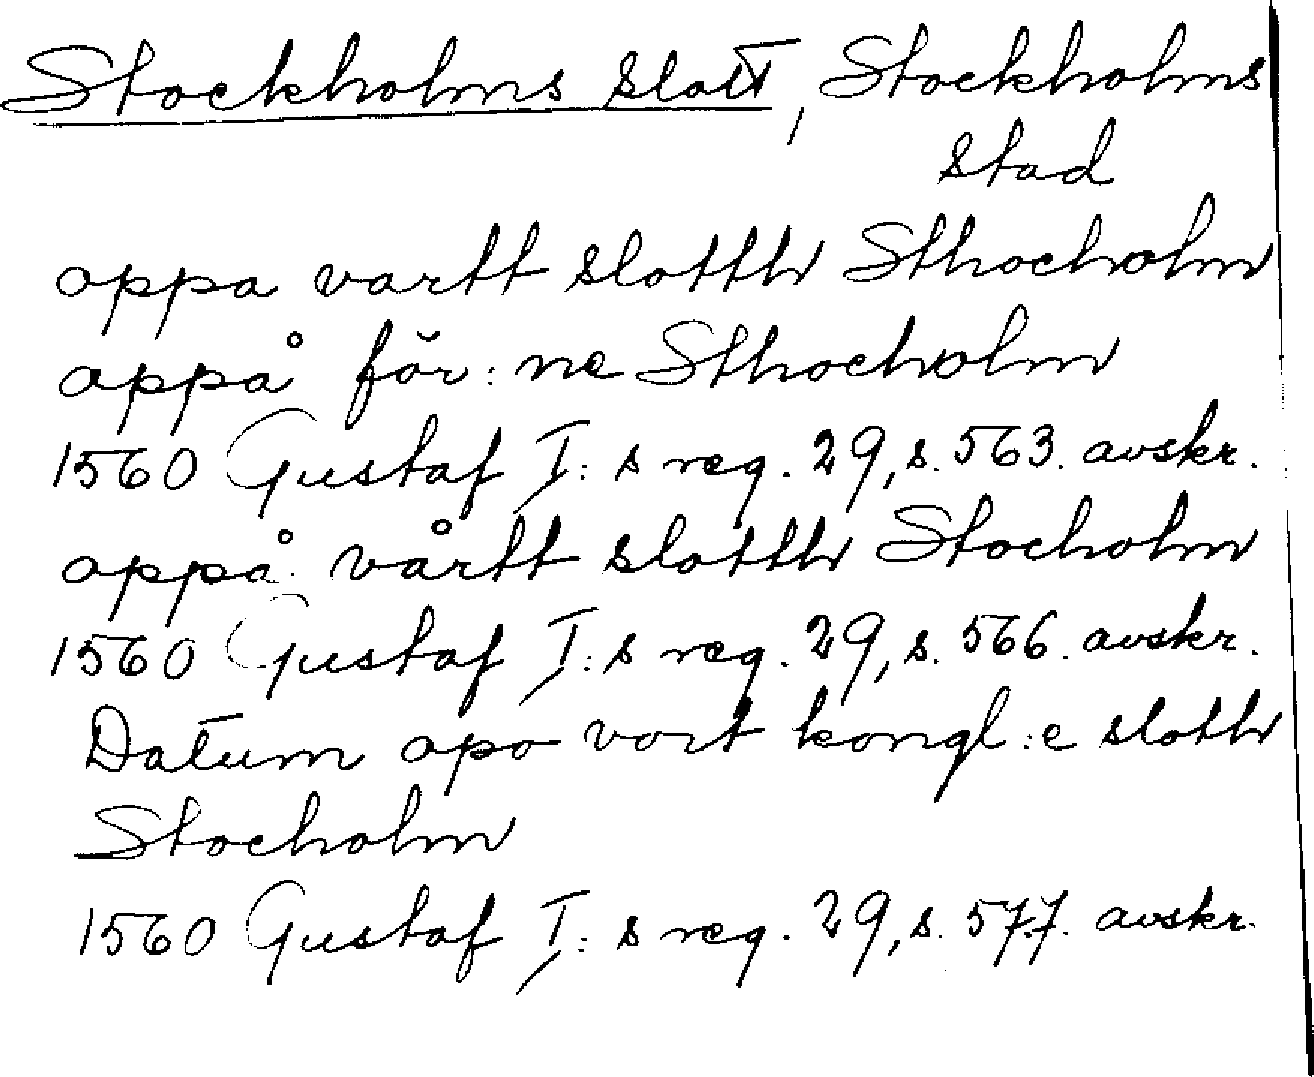 Stockholms slott, Stockholms
stad
oppa vartt slotth Sthocholm
oppå för:ne Sthocholm
1560 Gustaf I:s reg. 29, s. 563. avskr.
oppå vårtt slotth Stocholm
1560 Gustaf I:s reg. 29, s. 566. avskr.
Datum opo vort kongl:e sloth
Stocholm
1560 Gustaf I:s reg. 29, s. 577. avskr.